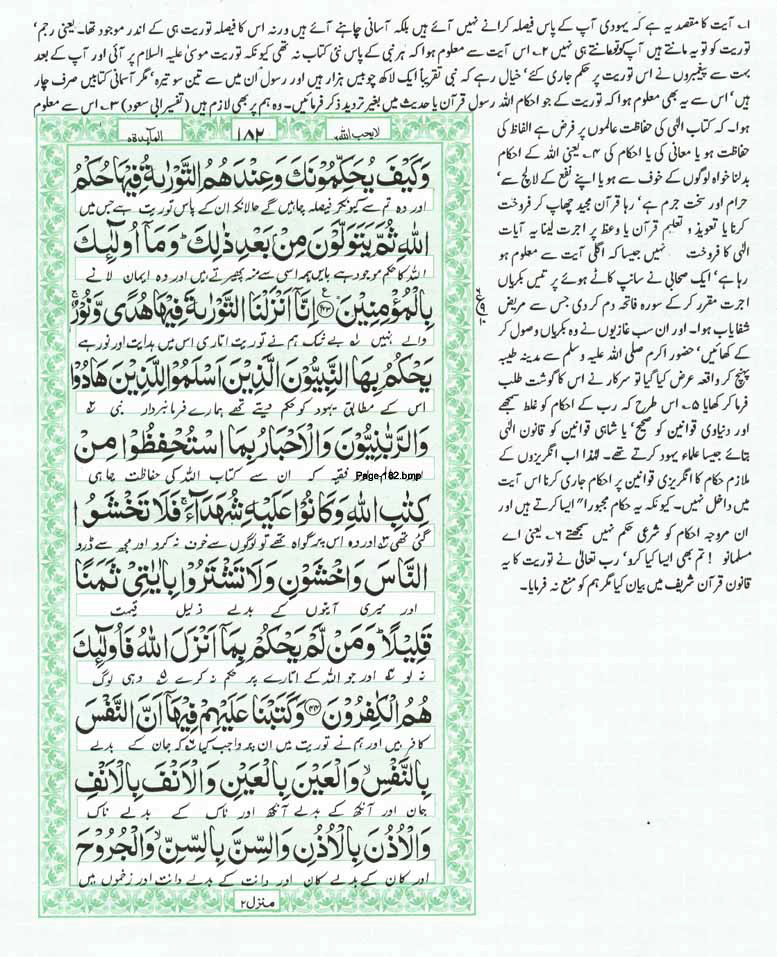 ۱۔ آیت کا مقصد یہ ہے کہ یہودی آپ کے پاس فیصلہ کرانے نہیں آئے ہیں بلکہ آسانی چاہنے آئے ہیں ورنہ اس کا فیصلہ توریت ہی کے اندر موجود تھا۔ یعنی رجم'
توریت کو تو یہ مانتے ہیں آپ کو تو مانتے ہی نہیں ۲۔ اس آیت سے معلوم ہوا کہ ہر نبی کے پاس نئی کتاب نہ تھی کیونکہ توریت موسیٰ علیہ السلام پر آئی اور آپ کے بعد
بہت سے پیغمبروں نے اس توریت پر حکم جاری کئے' خیال رہے کہ نبی تقریباً ایک لاکھ چوبیس ہزار ہیں اور رسول اُن میں سے تین سو تیرہ' مگر آسمانی کتابیں صرف چار
ہیں' اس سے یہ بھی معلوم ہوا کہ توریت کے جو احکام اللہ رسول قرآن یا حدیث میں بغیر تردید ذکر فرمائیں۔ وہ ہم پر بھی لازم ہیں (تفسیر ابی سعود) ۳۔ اس سے معلوم
ہوا۔ کہ کتاب الٰہی کی حفاظت عالموں پر فرض ہے الفاظ کی
حفاظت ہو یا معانی کی یا احکام کی ۴۔ یعنی اللہ کے احکام
بدلنا خواہ لوگوں کے خوف سے ہو یا اپنے نفع کے لالچ سے'
حرام اور سخت جرم ہے' رہا قرآن مجید چھاپ کر فروخت
کرنا یا تعویذ و تعلیم قرآن یا وعظ پر اجرت لینا یہ آیات
الٰہی کا فروخت نہیں جیسا کہ اگلی آیت سے معلوم ہو
رہا ہے' ایک صحابی نے سانپ کاٹے ہوئے پر تیس بکریاں
اجرت مقرر کر کے سورہ فاتحہ دم کر دی جس سے مریض
شفایاب ہوا۔ اور ان سب غازیوں نے وہ بکریاں وصول کر
کے کھائیں' حضور اکرم صلی اللہ علیہ وسلم سے مدینہ طیبہ
پہنچ کر واقعہ عرض کیا گیا تو سرکار نے اس کا گوشت طلب
فرما کر کھایا ۵۔ اس طرح کہ رب کے احکام کو غلط سمجھے
اور دنیاوی قوانین کو صحیح' یا شاہی قوانین کو قانون الٰہی
بتائے جیسا علماء یہود کرتے تھے۔ لہٰذا اب انگریزوں کے
ملازم حکام کا انگریزی قوانین پر احکام جاری کرنا اس آیت
میں داخل نہیں۔ کیونکہ یہ حکام مجبوراً" ایسا کرتے ہیں اور
ان مروجہ احکام کو شرعی حکم نہیں سمجھتے ۶۔ یعنی اے
مسلمانو ! تم بھی ایسا کیا کرو' رب تعالیٰ نے توریت کا یہ
قانون قرآن شریف میں بیان کیا مگر ہم کو منع نہ فرمایا۔
لا یحب اللہ ۱۸۲ المآئدۃ
وَكَيْفَ يُحَكِّمُونَكَ وَعِنْدَهُمُ التَّوْرٰىةُ فِيهَا حُكْمُ
اور وہ تم سے کیونکر فیصلہ چاہیں گے حالانکہ ان کے پاس توریت ہے جس میں
اللّٰهِ ثُمَّ يَتَوَلَّوْنَ مِنْ بَعْدِ ذٰلِكَ وَمَا أُولٰٓئِكَ
اللہ کا حکم موجود ہے بایں ہمہ اسی سے منہ پھیرتے ہیں اور وہ ایمان لانے
بِالْمُؤْمِنِينَ ﴿۴۳﴾ إِنَّا أَنْزَلْنَا التَّوْرٰىةَ فِيهَا هُدًى وَّنُورٌ
والے نہیں بے شک ہم نے توریت اتاری اس میں ہدایت اور نور ہے
يَحْكُمُ بِهَا النَّبِيُّونَ الَّذِينَ أَسْلَمُوا لِلَّذِينَ هَادُوا
اس کے مطابق یہود کو حکم دیتے تھے ہمارے فرمانبردار نبی
وَالرَّبّٰنِيُّونَ وَالْأَحْبَارُ بِمَا اسْتُحْفِظُوا مِنْ
فقیہ کہ ان سے کتاب اللہ کی حفاظت چاہی
Page-182.bmp
كِتٰبِ اللّٰهِ وَكَانُوا عَلَيْهِ شُهَدَآءَ فَلَا تَخْشَوُا
گئی تھی اور وہ اس پر گواہ تھے تو لوگوں سے خوف نہ کرو اور مجھ سے ڈرو
النَّاسَ وَاخْشَوْنِ وَلَا تَشْتَرُوا بِاٰيٰتِي ثَمَنًا
اور میری آیتوں کے بدلے ذلیل قیمت
قَلِيلًا وَمَنْ لَّمْ يَحْكُمْ بِمَآ أَنْزَلَ اللّٰهُ فَأُولٰٓئِكَ
نہ لو اور جو اللہ کے اتارے پر حکم نہ کرے وہی لوگ
هُمُ الْكٰفِرُونَ ﴿۴۴﴾ وَكَتَبْنَا عَلَيْهِمْ فِيهَآ أَنَّ النَّفْسَ
کافر ہیں اور ہم نے توریت میں ان پر واجب کیا کہ جان کے بدلے
بِالنَّفْسِ وَالْعَيْنَ بِالْعَيْنِ وَالْأَنْفَ بِالْأَنْفِ
جان اور آنکھ کے بدلے آنکھ اور ناک کے بدلے ناک
وَالْأُذُنَ بِالْأُذُنِ وَالسِّنَّ بِالسِّنِّ وَالْجُرُوحَ
اور کان کے بدلے کان اور دانت کے بدلے دانت اور زخموں میں
منزل ۲